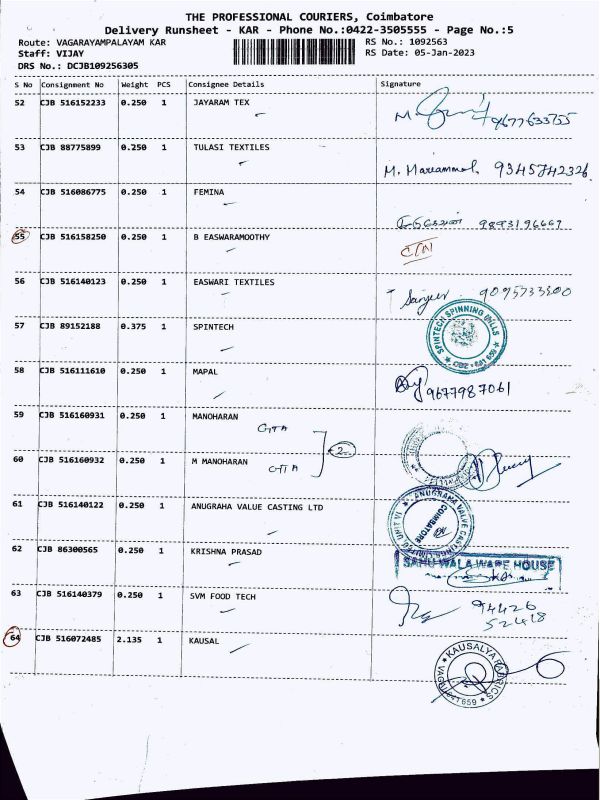 THE PROFESSIONAL COURIERS, Coimbatore
Delivery Runsheet - KAR - Phone No.:0422-3505555 - Page No.:5
Route: VAGARAYAMPALAYAM KAR RS No.: 1092563
Staff: VIJAY RS Date: 05-Jan-2023
DRS No.: DCJB109256305
S No Consignment No Weight PCS Consignee Details Signature
52 CJB 516152233 0.250 1 JAYARAM TEX 9677633755
53 CJB 88775899 0.250 1 TULASI TEXTILES M. Mareammal. 9345742326
54 CJB 516086775 0.250 1 FEMINA 9893196667
55 CJB 516158250 0.250 1 B EASWARAMOOTHY C/N
56 CJB 516140123 0.250 1 EASWARI TEXTILES Sanjeev 9095733300
57 CJB 89152188 0.375 1 SPINTECH SPINTECH SPINNING MILLS
58 CJB 516111610 0.250 1 MAPAL 9677987061
59 CJB 516160931 0.250 1 MANOHARAN
GTA
2
60 CJB 516160932 0.250 1 M MANOHARAN
GTA
61 CJB 516140122 0.250 1 ANUGRAHA VALUE CASTING LTD ANUGRAHA VALVE CASTINGS LIMITED UNIT VI COIMBATORE
62 CJB 86300565 0.250 1 KRISHNA PRASAD SAHU WALA WARE HOUSE
63 CJB 516140379 0.250 1 SVM FOOD TECH 94426
52418
64 CJB 516072485 2.135 1 KAUSAL KAUSALYA FABRICS